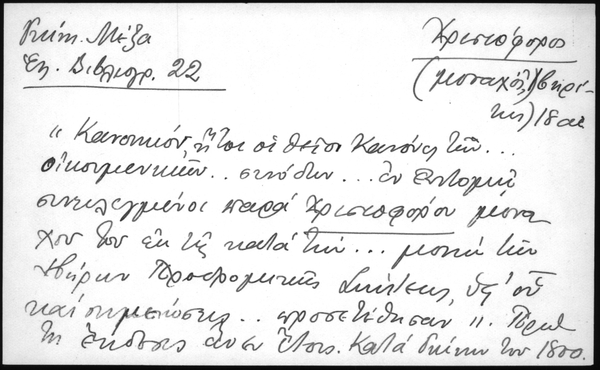 Γκίκη. Μέξα
Ελ. Βιβλιογρ. 22
Χριστόφορος
(μοναχός, Ιβηρί-
της) 18 αι
"Κανονικόν ἤτοι οἱ θεῖοι Κανόνες τῶν...
οἰκουμενικῶν.. συνόδων... ἐν ἐπιτομῇ
συνειλεγμένοι παρά Χριστοφόρου μονα
χοῦ τοῦ ἐκ τῆς κατά τήν... μονή τῶν
Ιβήρων Προδρομικῆς Σκήτεως, ὑφ' οὗ
καί σημειώσεις.. προσετέθησαν". Πρώ
τη ἔκδοσις ἄνευ ἔτους. Κατά Γκίνην τοῦ 1800.